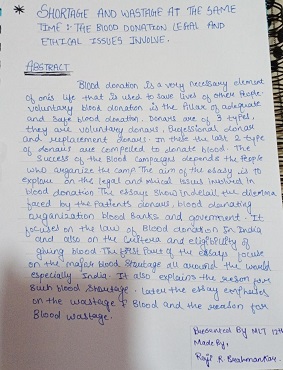 * SHORTAGE AND WASTAGE AT THE SAME
TIME : THE BLOOD DONATION LEGAL AND
ETHICAL ISSUES INVOLVE.
ABSTRACT
Blood donation is a very necessary element
of ones life that is used to save lives of other People
voluntary blood donation is the Pillar of adequate
and safe blood donation. Donars are of 3 types,
they are voluntary donars, Professional donars
and replacement donars. In these the last 2 type
of donars are compelled to donate blood. The
Success of the Blood Campaigns depends the People
who organize the camp The aim of the essay is to
explore on the legal and ethical issues involved in
blood donation The essays show indetail the dilemma
faced by the Patients donars, blood donating
organization blood Banks and government. It
focused on the law of Blood donation In India
and also on the Criteria and eligibility of
giving blood The first Part of the essays focuse
on the major blood Shoutage all around the world
especially India. It also explains the reason for
Such blood Shoutage. Later the essay emphasis
on the wastage of Blood and the reason for
Blood wastage.
Presented By MLT 12th
Made By,
Raji R. Brahmankar.